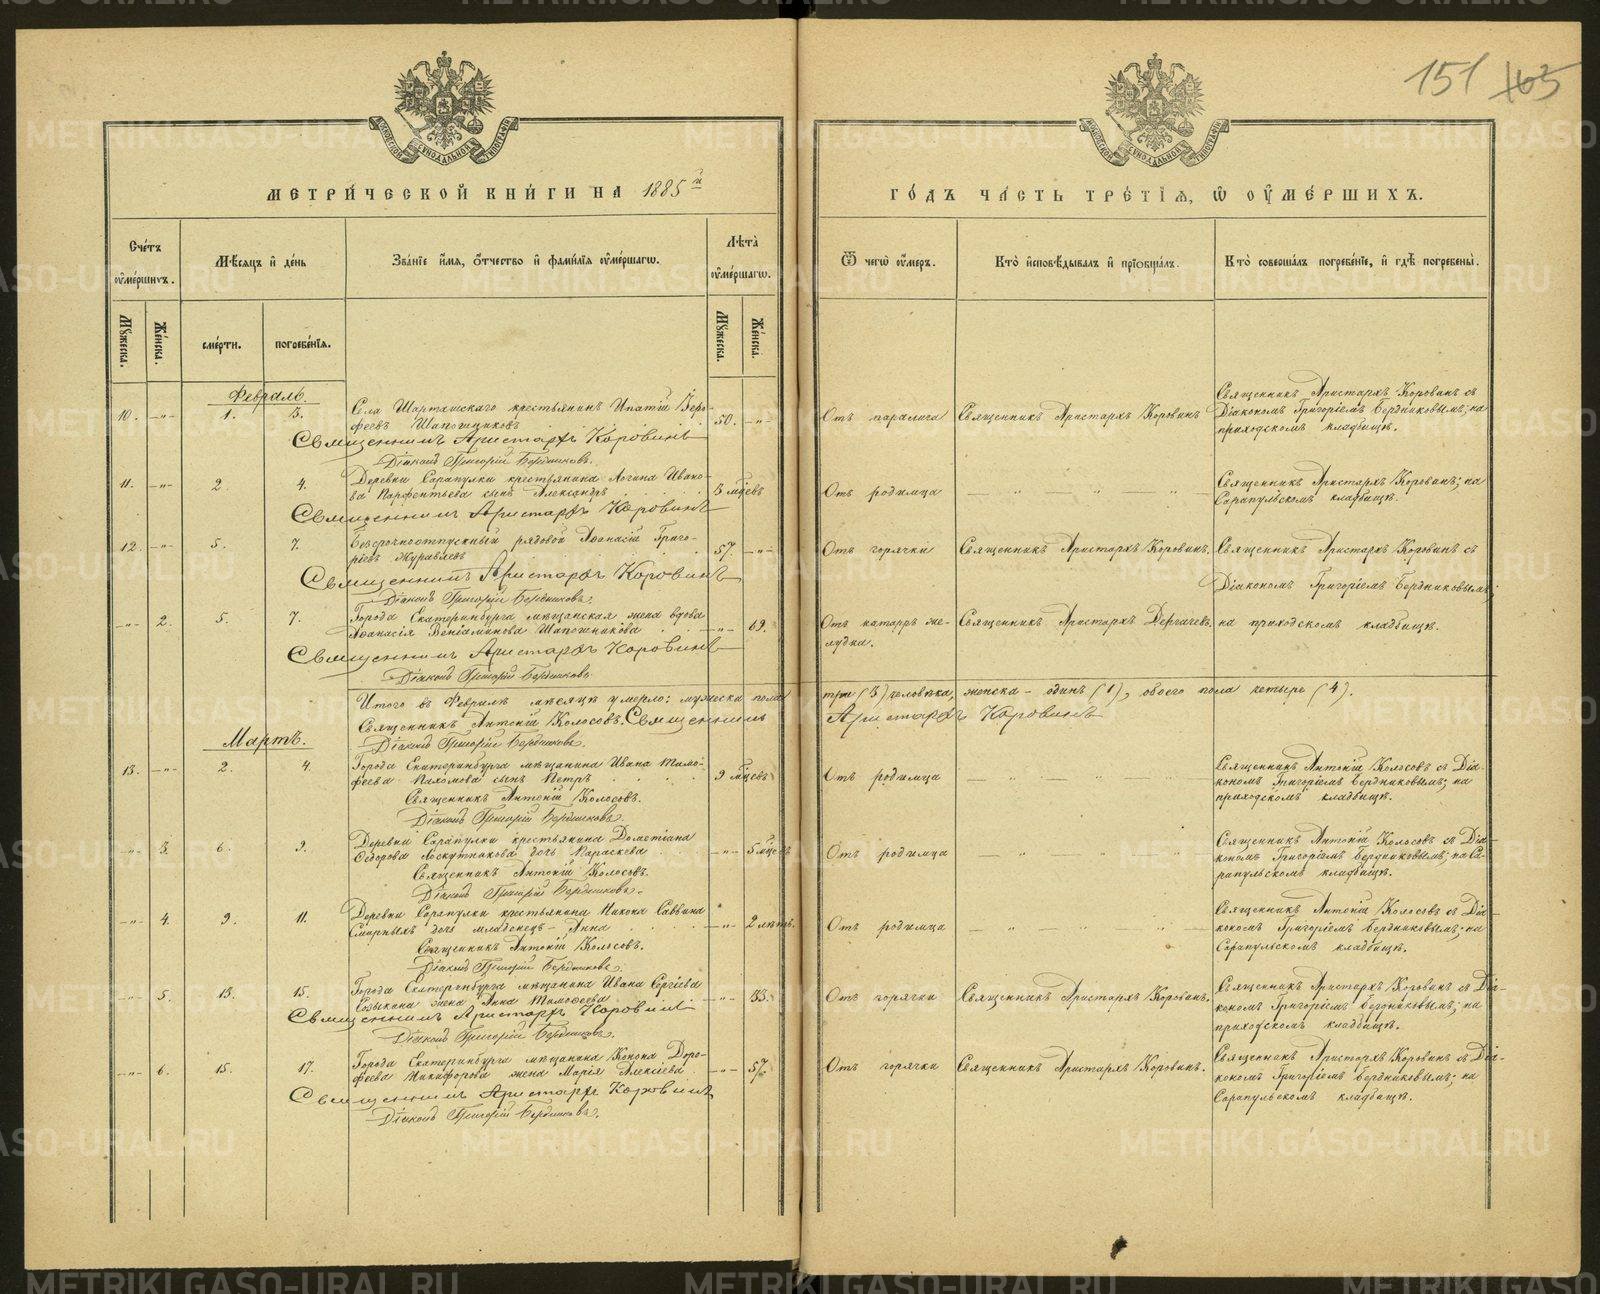 151
МЕТРИЧЕСКОЙ КНИГИ НА 1885 й
ГОДЪ ЧАСТЬ ТРЕТІЯ, Ѡ ОУМЕРШИХЪ.
Счетъ оумершихъ.
Мѣсяцъ и день
Званіе имя, отчество и фамилія оумершагω.
Лѣта оумершагω.
Ѿ чегω оумеръ.
Кто исповѣдывалъ и пріобщалъ.
Кто совершалъ погребеніе, и гдѣ погребены.
Мужеска.
Женска.
смерти.
погребенія.
Мужеска.
Женска.
Февраль.
10. —„— 1. 3.
Села Шарташскаго крестьянинъ Ипатій Дорофеевъ Шапошниковъ
50. —„—
Отъ паралича
Священникъ Аристархъ Коровинъ
Священникъ Аристархъ Коровинъ съ
Діакономъ Григоріемъ Бердниковымъ; на
приходскомъ кладбищѣ.
Священникъ Аристархъ Коровинъ
Діаконъ Григорій Бердниковъ.
11. —„— 2. 4.
Деревни Сарапулки крестьянина Логина Ивано-
ва Парфентьева сынъ Александръ
3 мцевъ
Отъ родимца
Священникъ Аристархъ Коровинъ; на
Сарапульскомъ кладбищѣ.
Священникъ Аристархъ Коровинъ
12. —„— 5. 7.
Безсрочноотпускный рядовой Аѳанасій Григо-
рьевъ Журавлевъ
57. —„—
Отъ горячки
Священникъ Аристархъ Коровинъ.
Священникъ Аристархъ Коровинъ съ
Діакономъ Григоріемъ Бердниковымъ;
Священникъ Аристархъ Коровинъ
Діаконъ Григорій Бердниковъ.
—„— 2. 5. 7.
Города Екатеринбурга мѣщанская жена вдова
Аѳанасія Веніаминова Шапошникова
—„— 69.
Отъ катарръ же-
лудка.
Священникъ Аристархъ Дергачевъ.
на приходскомъ кладбищѣ.
Священникъ Аристархъ Коровинъ
Діаконъ Григорій Бердниковъ.
Итого въ Февралѣ мѣсяцѣ умерло: мужеска пола
три (3) человѣка, женска – одинъ (1), обоего пола четыре (4).
Священникъ Антоній Колосовъ. Священникъ
Аристархъ Коровинъ
Діаконъ Григорій Бердниковъ.
Мартъ.
13. —„— 2. 4.
Города Екатеринбурга мѣщанина Ивана Тимо-
феева Пахомова сынъ Петръ
9 мцевъ
Отъ родимца
Священникъ Антоній Колосовъ съ Діа-
кономъ Григоріемъ Бердниковымъ; на
приходскомъ кладбищѣ.
Священникъ Антоній Колосовъ.
Діаконъ Григорій Бердниковъ.
—„— 3. 6. 9.
Деревни Сарапулки крестьянина Дометіана
Ѳедорова Лоскутникова дочь Параскева
—„— 5 мцевъ
Отъ родимца
Священникъ Антоній Колосовъ съ Діа-
кономъ Григоріемъ Бердниковымъ; на Са-
рапульскомъ кладбищѣ.
Священникъ Антоній Колосовъ.
Діаконъ Григорій Бердниковъ.
—„— 4. 9. 11.
Деревни Сарапулки крестьянина Никона Саввина
Смирныхъ дочь младенецъ – Анна
—„— 2 лѣтъ.
Отъ родимца
Священникъ Антоній Колосовъ съ Діа-
кономъ Григоріемъ Бердниковымъ; на
Сарапульскомъ кладбищѣ.
Священникъ Антоній Колосовъ.
Діаконъ Григорій Бердниковъ.
—„— 5. 13. 15.
Города Екатеринбурга мѣщанина Ивана Сергѣева
жена Анна Тимофеева
—„— 33.
Отъ горячки
Священникъ Аристархъ Коровинъ.
Священникъ Аристархъ Коровинъ съ Діа-
кономъ Григоріемъ Бердниковымъ; на
приходскомъ кладбищѣ.
Священникъ Аристархъ Коровинъ
Діаконъ Григорій Бердниковъ.
—„— 6. 15. 17.
Города Екатеринбурга мѣщанина Конона Доро-
феева Никифорова жена Марія Алексіева
—„— 57.
Отъ горячки
Священникъ Аристархъ Коровинъ.
Священникъ Аристархъ Коровинъ съ Діа-
кономъ Григоріемъ Бердниковымъ; на
Сарапульскомъ кладбищѣ.
Священникъ Аристархъ Коровинъ
Діаконъ Григорій Бердниковъ.
METRIKI.GASO-URAL.RU